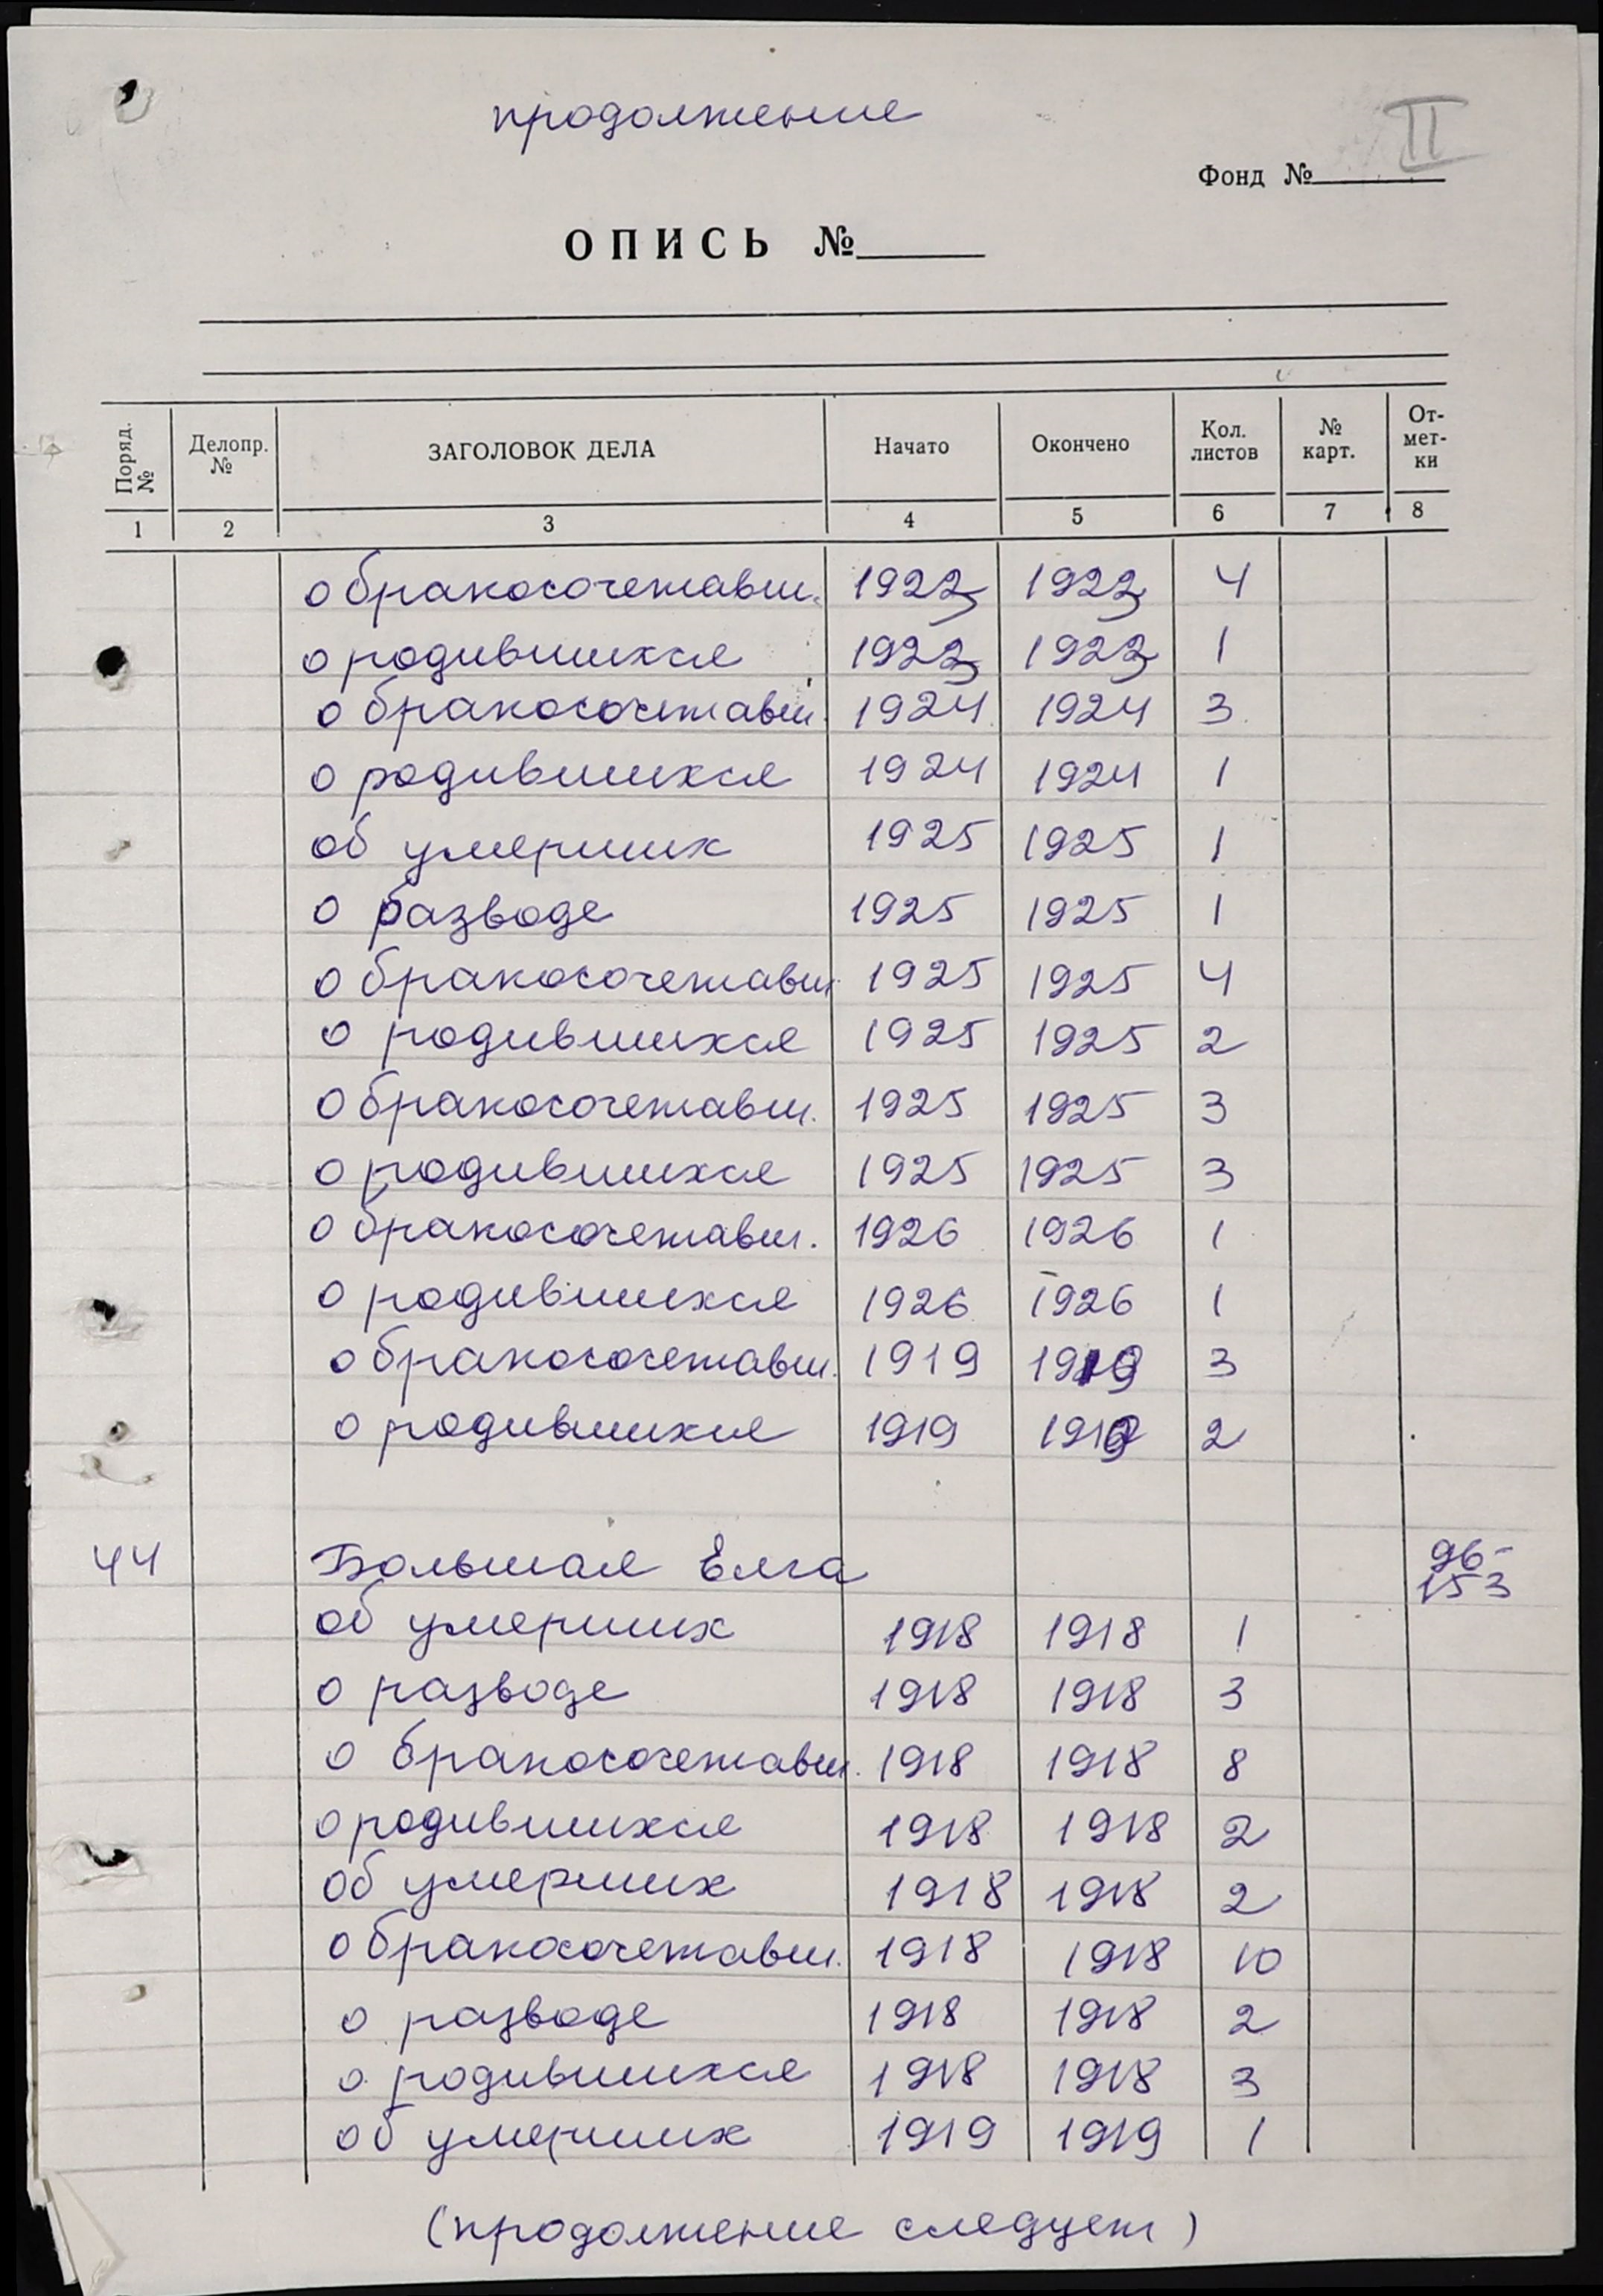 продолжение
II
Фонд №
ОПИСЬ №
Поряд. № Делопр. № ЗАГОЛОВОК ДЕЛА Начато Окончено Кол. листов № карт. От-мет-ки
1 2 3 4 5 6 7 8
о бракосочетавш. 1923 1923 4
о родившихся 1923 1923 1
о бракосочетавш. 1924 1924 3
о родившихся 1924 1924 1
об умерших 1925 1925 1
о разводе 1925 1925 1
о бракосочетавш. 1925 1925 4
о родившихся 1925 1925 2
о бракосочетавш. 1925 1925 3
о родившихся 1925 1925 3
о бракосочетавш. 1926 1926 1
о родившихся 1926 1926 1
о бракосочетавш. 1919 1919 3
о родившихся 1919 1919 2
44 Большая Елга 96-153
об умерших 1918 1918 1
о разводе 1918 1918 3
о бракосочетавш. 1918 1918 8
о родившихся 1918 1918 2
об умерших 1918 1918 2
о бракосочетавш. 1918 1918 10
о разводе 1918 1918 2
о родившихся 1918 1918 3
об умерших 1919 1919 1
(продолжение следует)